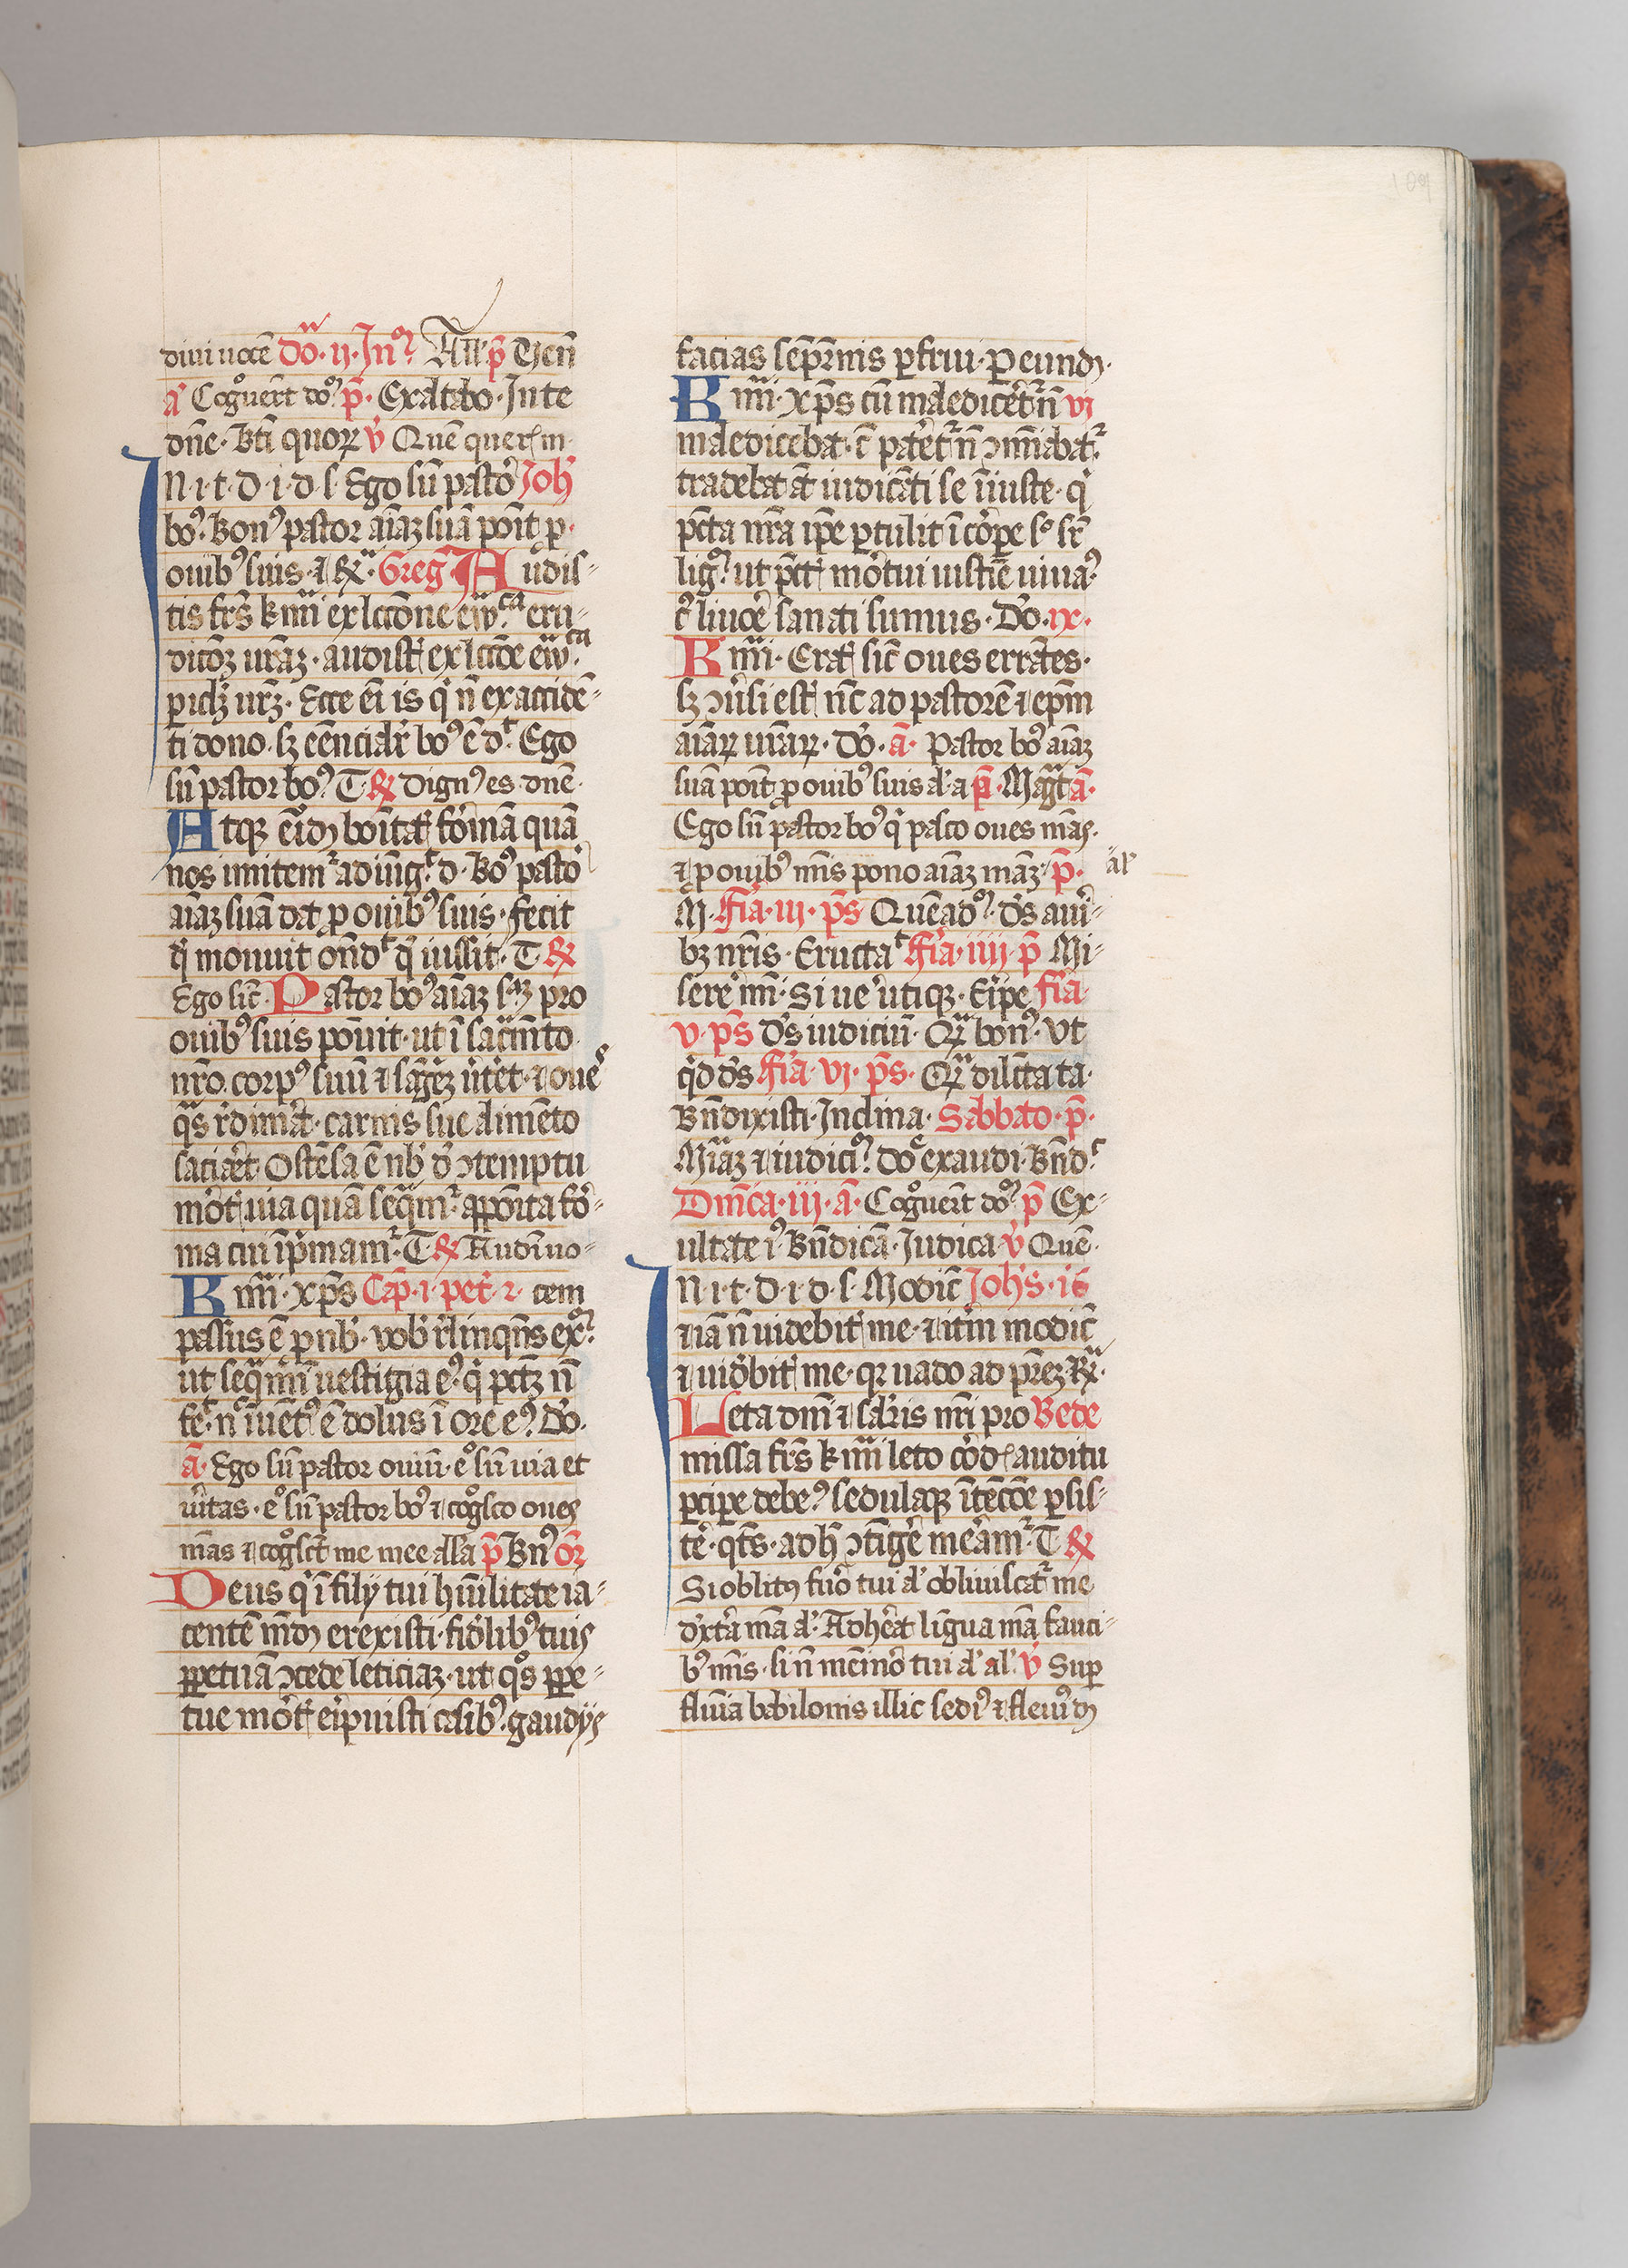 109
diui uocē dō·ii·Inꝰ Aīr p̄ Venī
a Cog̊uer̄t do᷒ p̄· Exaltabo·In te
dn̄e·Bt̄i quoꝝ v̾ Quē querꝭ m
I N·i·t·d·i·d·l·Ego sū pasto᷒ Joh̄
boꝰ·Bonꝰ pastor aīaꝫ suā pōit ꝓ·
ouibꝰ suis·⁊ rͣ·Greg̾·Audis-
tis fr̄s kmi ex lccōne ew̄ᶜᵃ eru-
dicōꝫ ur̄aꝫ·audistꝭ ex lccōe ew̄ᶜᵃ
ꝑiclꝫ ur̄ꝫ·Ecce ei᷒ is qͥ n̄ ex accidē-
ti dono·sꝫ eēncialr̾ boꝰ ē dᵗ·Ego
sū pastor boꝰ T ℟ Dignꝰ es·dn̄e·
Atqꝫ ei᷒dꝫ boītatꝭ fo᷒mā quā
nos imitemᷣ adiūgᵗ·d·Boꝰ pasto᷒
aīaꝫ suā dat ꝓ ouibꝰ suis·fecit
qͩ monuit on̄dᵗ qͩ iussit·T ℟
Ego sic̄·Pastor boꝰ aīaꝫ sͣꝫ pro
ouibꝰ suis po᷒uit·ut ī sac̄mto
nr̄o·corpꝰ suū ⁊ sāg̾ꝫ ūtet·⁊ oue᷒
qͣs r̾dim̾at·carnis sue alimēto
saciar̾et Ostēsa ē nb᷒ d̾ ↄtemptu
mo᷒tꝭ uia quā seqͣmᷣ·appo᷒ita fo᷒-
ma cui īp̾mamᷣ·T ℟ Audiui uo-
B mi·xp̄s Cap̄·i·pet̾·2· cem
passus ē ꝓ nb᷒·vob᷒ r̾linqn̄s ex᷒
ut seqͣmī uestigia eꝰ·qͥ pctꝫ n̄
feᵗ·nͨ īuētꝰ ē dolus ī ore eꝰ·Do᷒·
ā·Ego sū pastor ouiū·e̊ sū uia et
u̾itas·e̊ sū pastor boꝰ ⁊ cog̊sco oues
mās ⁊ cog̊sct̄ me mee alla p̄ Bnꝰ or̄
Deus qͥ ī filij tui hūilitate ia-
centē mūdꝫ erexisti·fid̾libꝰ tuis
ꝑpetuā ↄcede leticiaꝫ·ut qͦs ꝑpe-
tue mo᷒tꝭ eip̾uisti casibꝰ·gaudijs
facias sēpr̾nis ꝑfrui·Per eundꝫ·
B mi·xp̄s cū maledicer̾etᷣ n̄ vi
maledicebat·c̄ pater̾etᷣ n̄ ↄmīabatᷣ·
tradebat āt iudicāti se īiuste·qͥ
pc̄ta nr̄a ip̄e ꝑtulit ī co᷒pe sͦ sr̄
lig᷒·ut pctꝭ mo᷒tui iusticie uiuaꝰ·
cꝰ liuo᷒e sanati sumus·Do᷒·ix·
B mi·Eratꝭ sic̄ oues errātes·
sꝫ ↄu̾si estꝭ nc̄ ad pastorē ⁊ ep̄m
aīaꝝ ur̄aꝝ·Do᷒·ā·Pastor boꝰ aīaꝫ
suā pōit ꝓ ouibꝰ suis al̾a p̄·Magͣt ā·
Ego sū pastor boꝰ qͥ pasco oues mās·
⁊ ꝓ ouibꝰ mīs pono aīaꝫ māꝫ·p̄· al̾
M·Fīa·iii·ps̄ Quēad᷒·Ds̄ auri-
bꝫ nr̄is·Eructaᵗ Fīa·iiii·p̄ Mi-
sere᷒ mī·Si ue᷒ utiqꝫ·Eip̾e fīa
v·ps̄ Ds̄ iudiciū·Qͣm bonꝰ·Vt
qͥd ds̄ Fīa·vi·ps̄·Qͣm dilc̄ta ta·
Bn̄dixisti·Inclina·Sabbato·p̄·
Mīaꝫ ⁊ iudici᷒ Do᷒ exaudi·Bn̄dᵗ
Dn̄ica·iii·ā·Cog̊uer̄t do᷒ p̄ Ex-
ultate i᷒ Bn̄dicā·Judica v̾ Quē·
I N·i·t·d·i·d·l·Modic̄ Joh̄s·16
⁊ iā n̄ uidebitꝭ me·⁊ itm̄ modic̄
⁊ uid̾bitꝭ me·qꝛ uado ad pr̄eꝫ·rͣ·
Leta dn̄i ⁊ saluar̾is nr̄i pro Bede
missa fr̄s kmi leto co᷒dꝭ auditu
ꝑcipe debeꝰ sedulaqꝫ ītēcōe ꝑsis-
te᷒·qt̄s·ad h̄ ↄtīge᷒ mereamᷣ·T ℟
Si oblitꝰ fu᷒o tui al̾ obliuiscatᷣ me
d̾xt̾a mā al̾·Adher̾at lingua mā fauci-
bꝰ mīs·si n̄ mēino᷒ tui al̾ al̾·v̾ Sup̄
flumīa babilonis illic sediꝰ ⁊ fleuiꝰ dꝫ